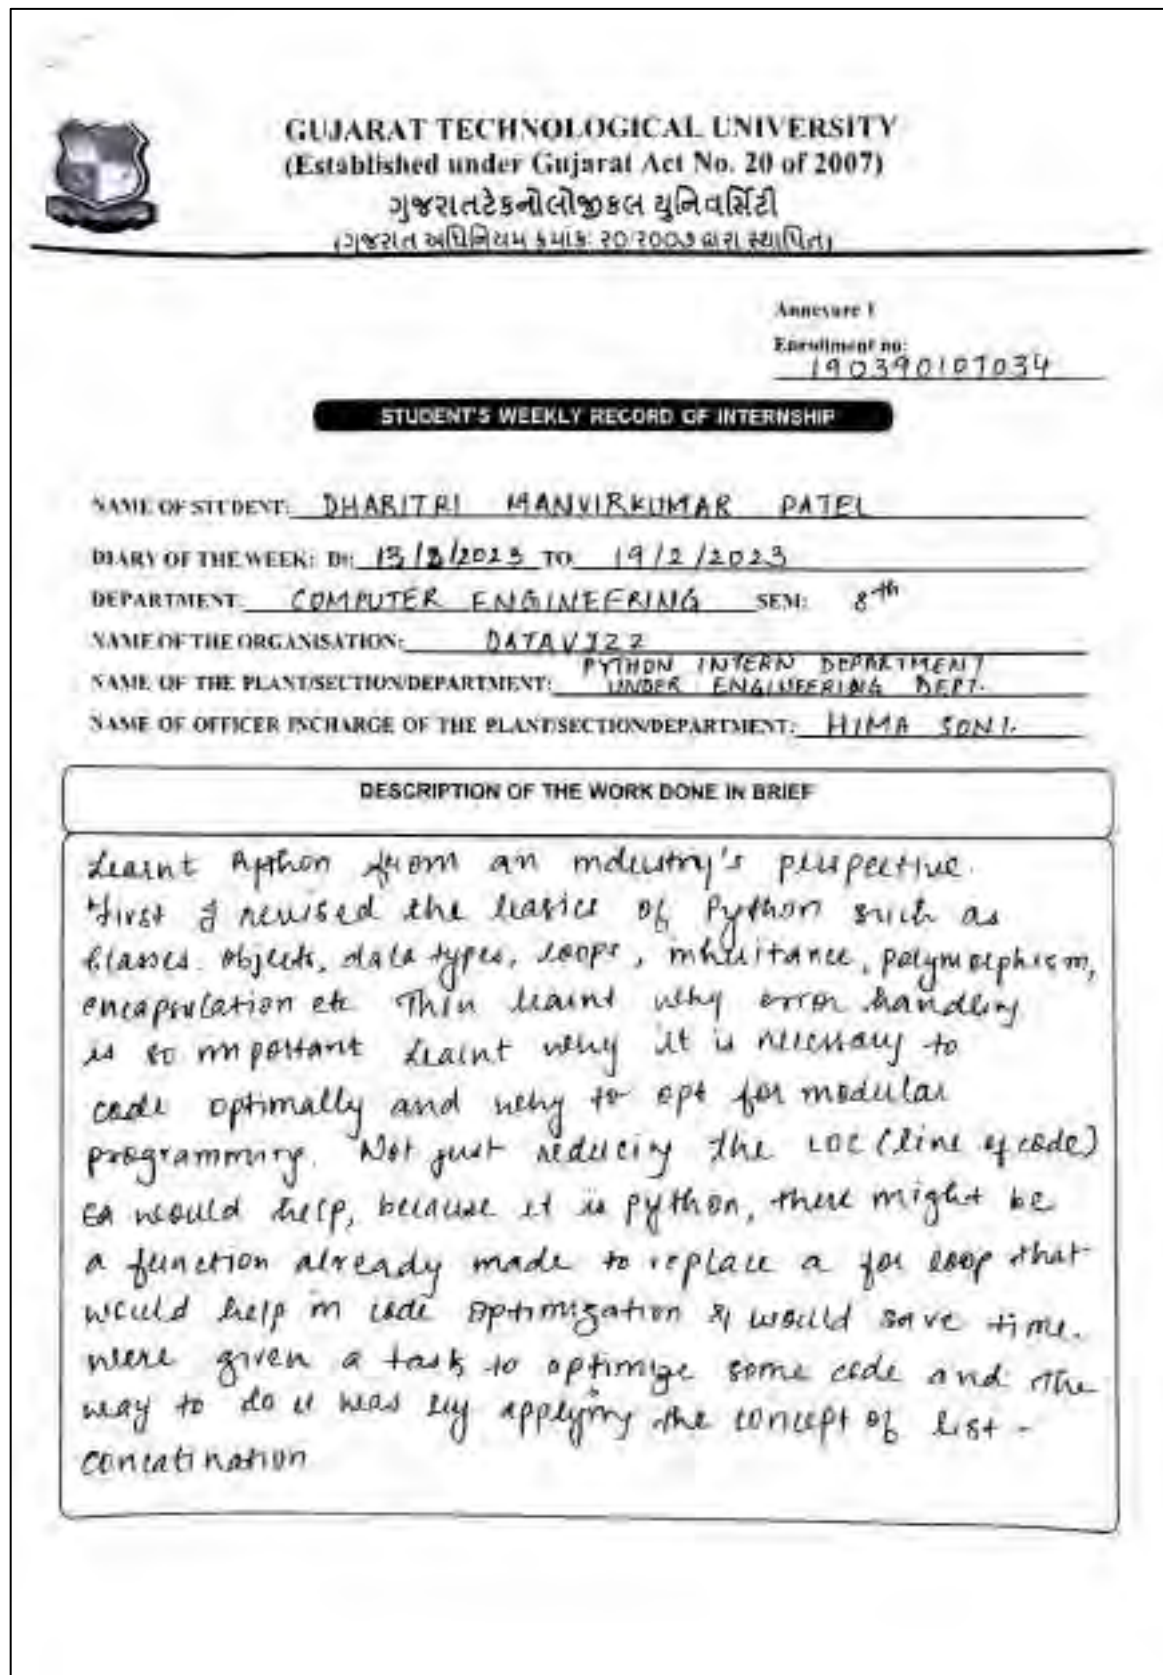 GUJARAT TECHNOLOGICAL UNIVERSITY
(Established under Gujarat Act No. 20 of 2007)
ગુજરાતટેકનોલોજીકલ યુનિવર્સિટી
(ગુજરાત અધિનિયમ ક્રમાંક: ૨૦/૨૦૦૭ દ્વારા સ્થાપિત)
Annexure 1
Enrollment no:
190390107034
STUDENT'S WEEKLY RECORD OF INTERNSHIP
NAME OF STUDENT: DHARITRI MANVIRKUMAR PATEL
DIARY OF THE WEEK: Dt: 13/2/2023 TO 19/2/2023
DEPARTMENT: COMPUTER ENGINEERING SEM: 8th
NAME OF THE ORGANISATION: DATAVIZZ
PYTHON INTERN DEPARTMENT
NAME OF THE PLANT/SECTION/DEPARTMENT: UNDER ENGINEERING DEPT.
NAME OF OFFICER INCHARGE OF THE PLANT/SECTION/DEPARTMENT: HIMA SONI.
DESCRIPTION OF THE WORK DONE IN BRIEF
Learnt Python from an industry's perspective.
First I revised the basics of Python such as
classes. objects, data types, loops, inheritance, polymorphism,
encapsulation etc Then learnt why error handling
is so important Learnt why it is necessary to
code optimally and why to opt for modular
programming. Not just reducing the LOC (line of code)
would help, because it is python, there might be
a function already made to replace a for loop that
would help in code optimization & would save time.
were given a task to optimize some code and the
way to do it was by applying the concept of list -
concatination